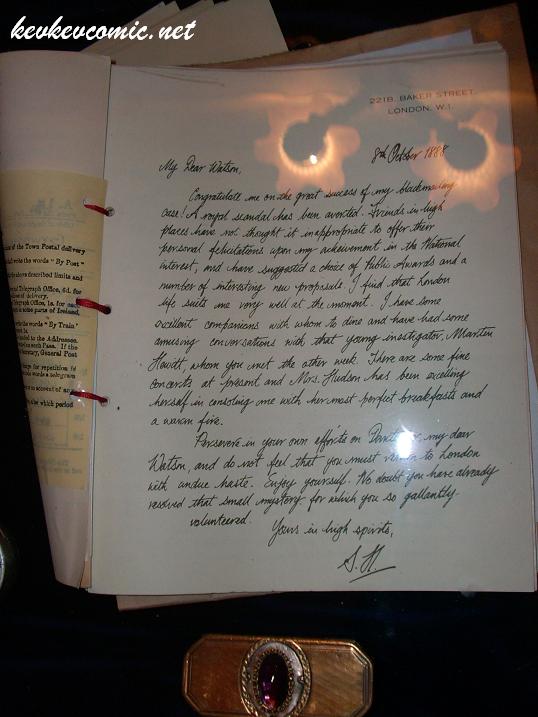 kevkevcomic.net
221B, BAKER STREET,
LONDON, W.1.
8th October 1888
My Dear Watson,
Congratulate me on the great success of my blackmailing
case! A royal scandal has been averted. Friends in high
places have not thought it inappropriate to offer their
personal felicitations upon my achievement in the National
interest, and have suggested a choice of Public Awards and a
number of interesting new proposals. I find that London
life suits me very well at the moment. I have some
excellent companions with whom to dine and have had some
amusing conversations with that young investigator, Martin
Hewitt, whom you met the other week. There are some fine
concerts at present and Mrs. Hudson has been excelling
herself in consoling me with her most perfect breakfasts and
a warm fire.
Persevere in your own efforts on my dear
Watson, and do not feel that you must return to London
with undue haste. Enjoy yourself. No doubt you have already
resolved that small mystery for which you so gallantly
volunteered.
Yours in high spirits,
S. H.
of the Town Postal delivery
write the words "By Post"
above described limits and
Telegraph Office, 6d. for
of delivery.
Telegraph Office, 1s. for each
some parts of Ireland,
the words "By Train"
to the Addressee.
Pass. If the
Secretary, General Post
for repetition if
words a telegram
on account of any
which period